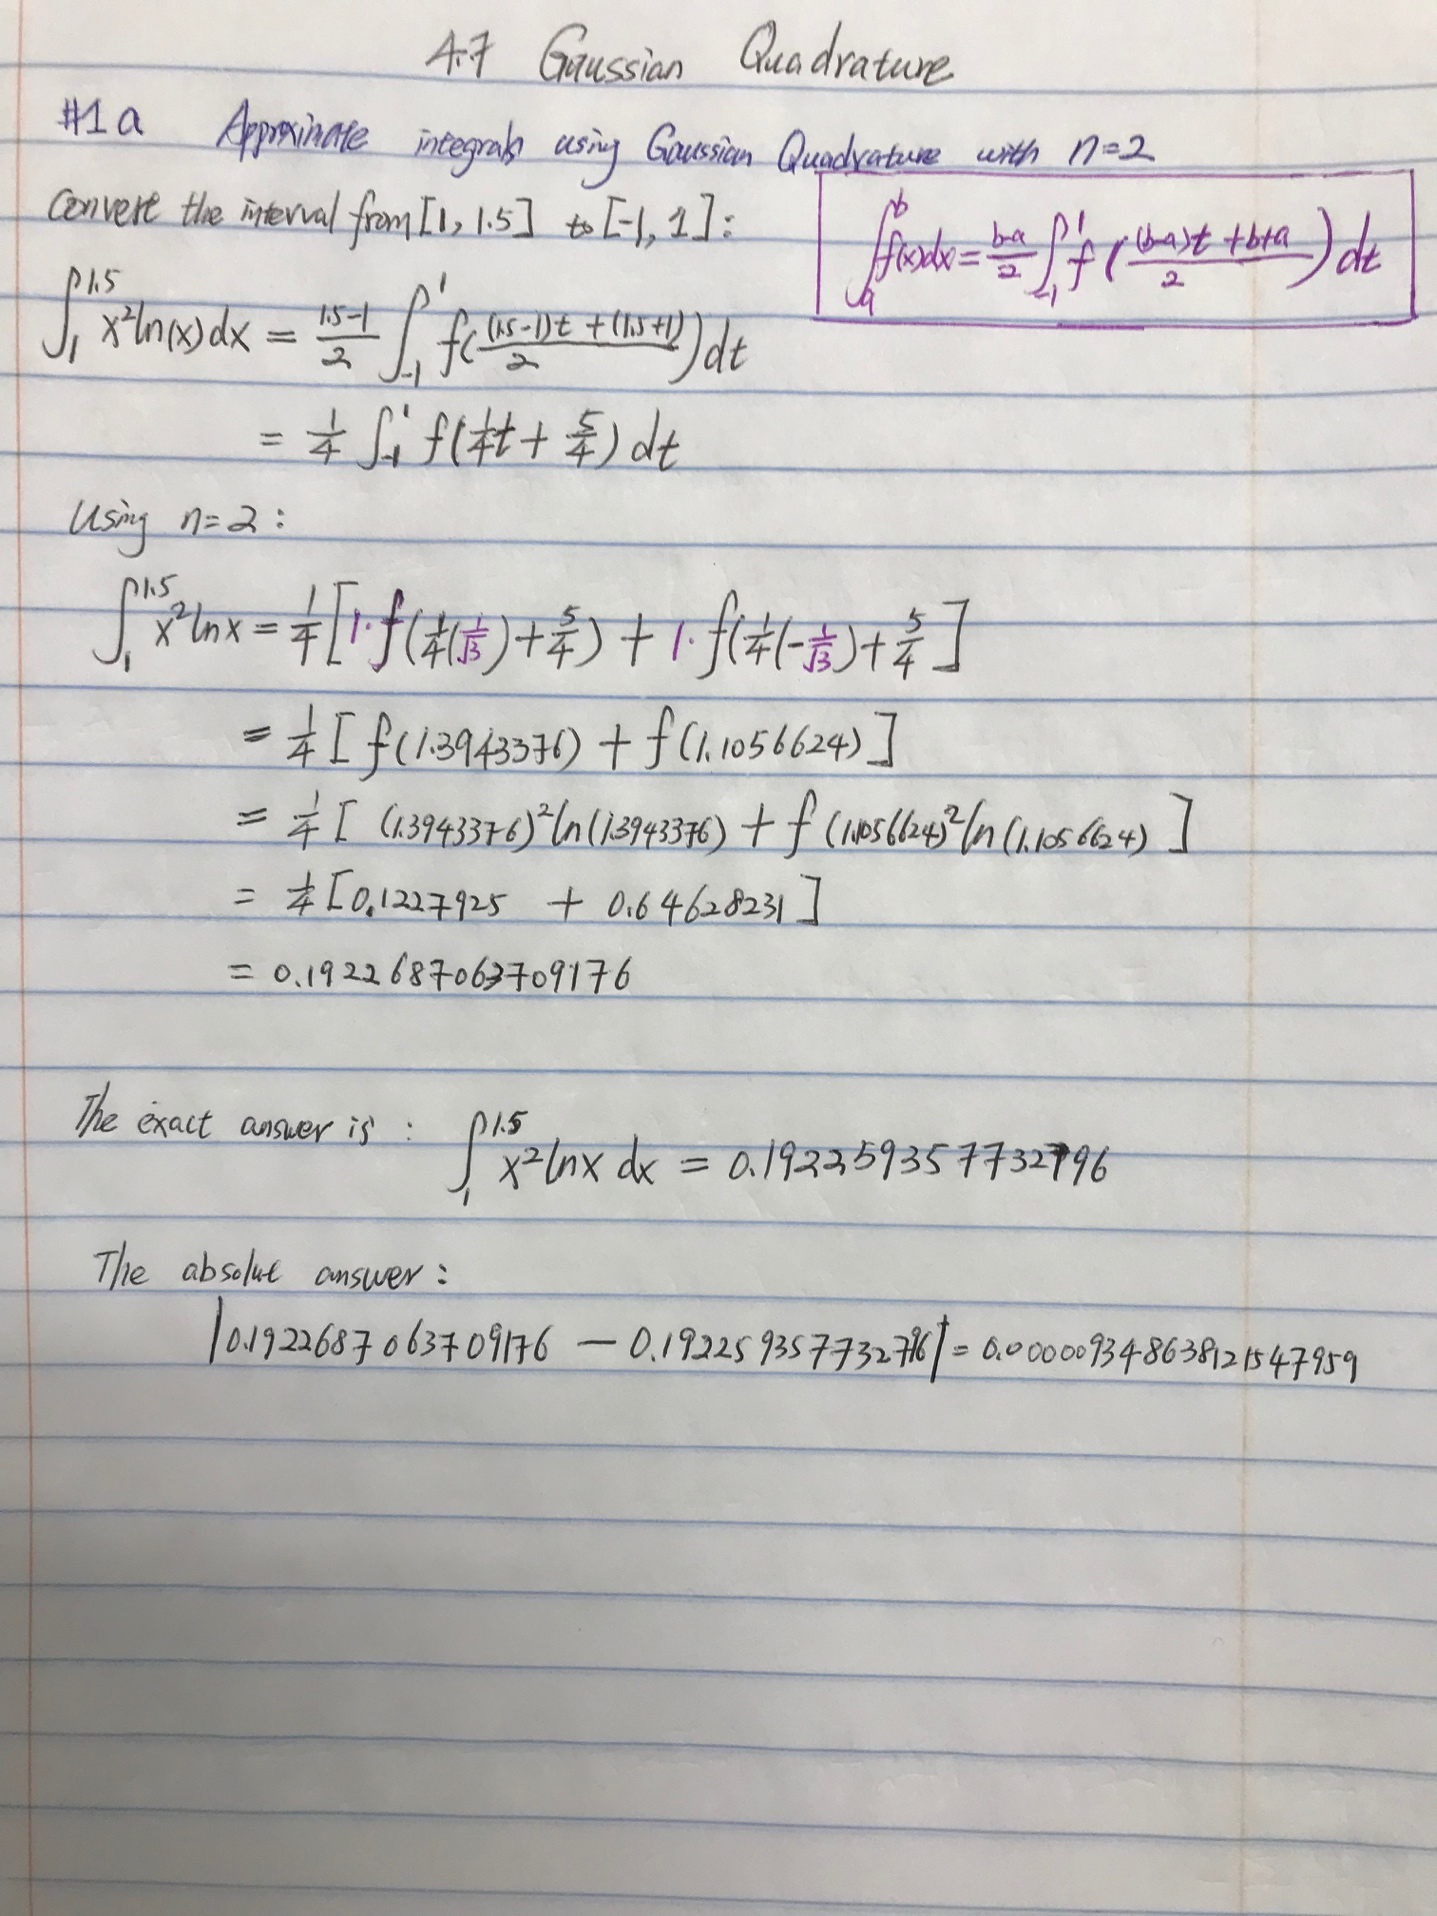 4.7 Gaussian Quadrature
#1a Approximate integrals using Gaussian Quadrature with n=2
Convert the interval from [1, 1.5] to [-1, 1]:
∫_a^b f(x)dx = (b-a)/2 ∫_{-1}^1 f(((b-a)t + b+a)/2) dt
∫_1^{1.5} x²ln(x)dx = (1.5-1)/2 ∫_{-1}^1 f(((1.5-1)t + (1.5+1))/2) dt
= 1/4 ∫_{-1}^1 f(1/4 t + 5/4) dt
Using n=2:
∫_1^{1.5} x²lnx = 1/4 [1·f(1/4(1/√3) + 5/4) + 1·f(1/4(-1/√3) + 5/4]
= 1/4 [f(1.3943376) + f(1.1056624)]
= 1/4 [(1.3943376)²ln(1.3943376) + f(1.1056624)²ln(1.1056624)]
= 1/4 [0.1227925 + 0.64628231]
= 0.1922687063709176
The exact answer is: ∫_1^{1.5} x²lnx dx = 0.192259357732796
The absolut answer:
|0.1922687063709176 − 0.192259357732796| = 0.00000934863812154​7959